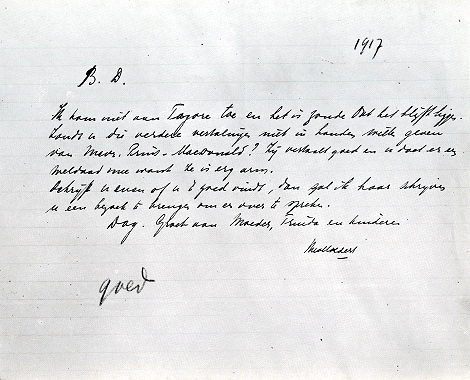 1917
B. D.
Ik kom niet aan Tagore toe en het is zonde dat het blijft liggen.
Zoudt u die verdere vertalingen niet in handen willen geven
van Mevr. Kruis-MacDonald? Zij vertaalt goed en u doet er een
weldaad mee want ze is erg arm.
Schrijft u even of u 't goed vindt, dan zal ik haar schrijven
u een bezoek te brengen om er over te spreken.
Dag. Groet aan Moeder, Truida en kinderen
goed